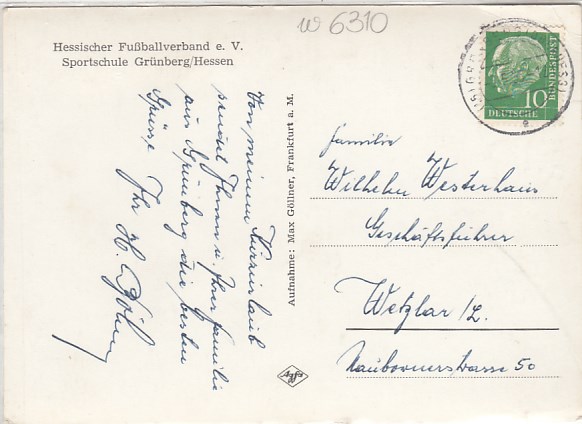 w 6310
Hessischer Fußballverband e. V.
Sportschule Grünberg/Hessen
Von meinem Kurzurlaub
sendet Ihnen u. Ihrer Familie
aus Grünberg die besten
Grüsse Ihr H.
Aufnahme: Max Göllner, Frankfurt a. M.
Agfa
10
DEUTSCHE
BUNDESPOST
Familie
Wilhelm Westerhaus
Geschäftsführer
Wetzlar/L.
Naubornerstrasse 50